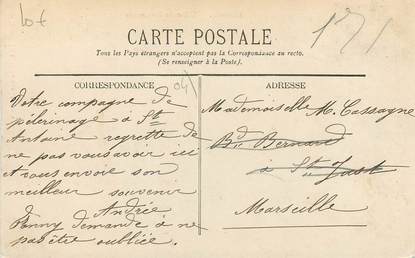 lot
CARTE POSTALE
Tous les Pays étrangers n'acceptent pas la Correspondance au recto.
(Se renseigner à la Poste).
CORRESPONDANCE
04
Votre compagne de
pélerinage à St
Antoine regrette de
ne pas vous avoir ici
et vous envoie son
meilleur souvenir
Andrée
Fanny demande à ne
pas être oubliée.
ADRESSE
Mademoiselle M. Cassagne
Bd Bernard
à St Just
Marseille